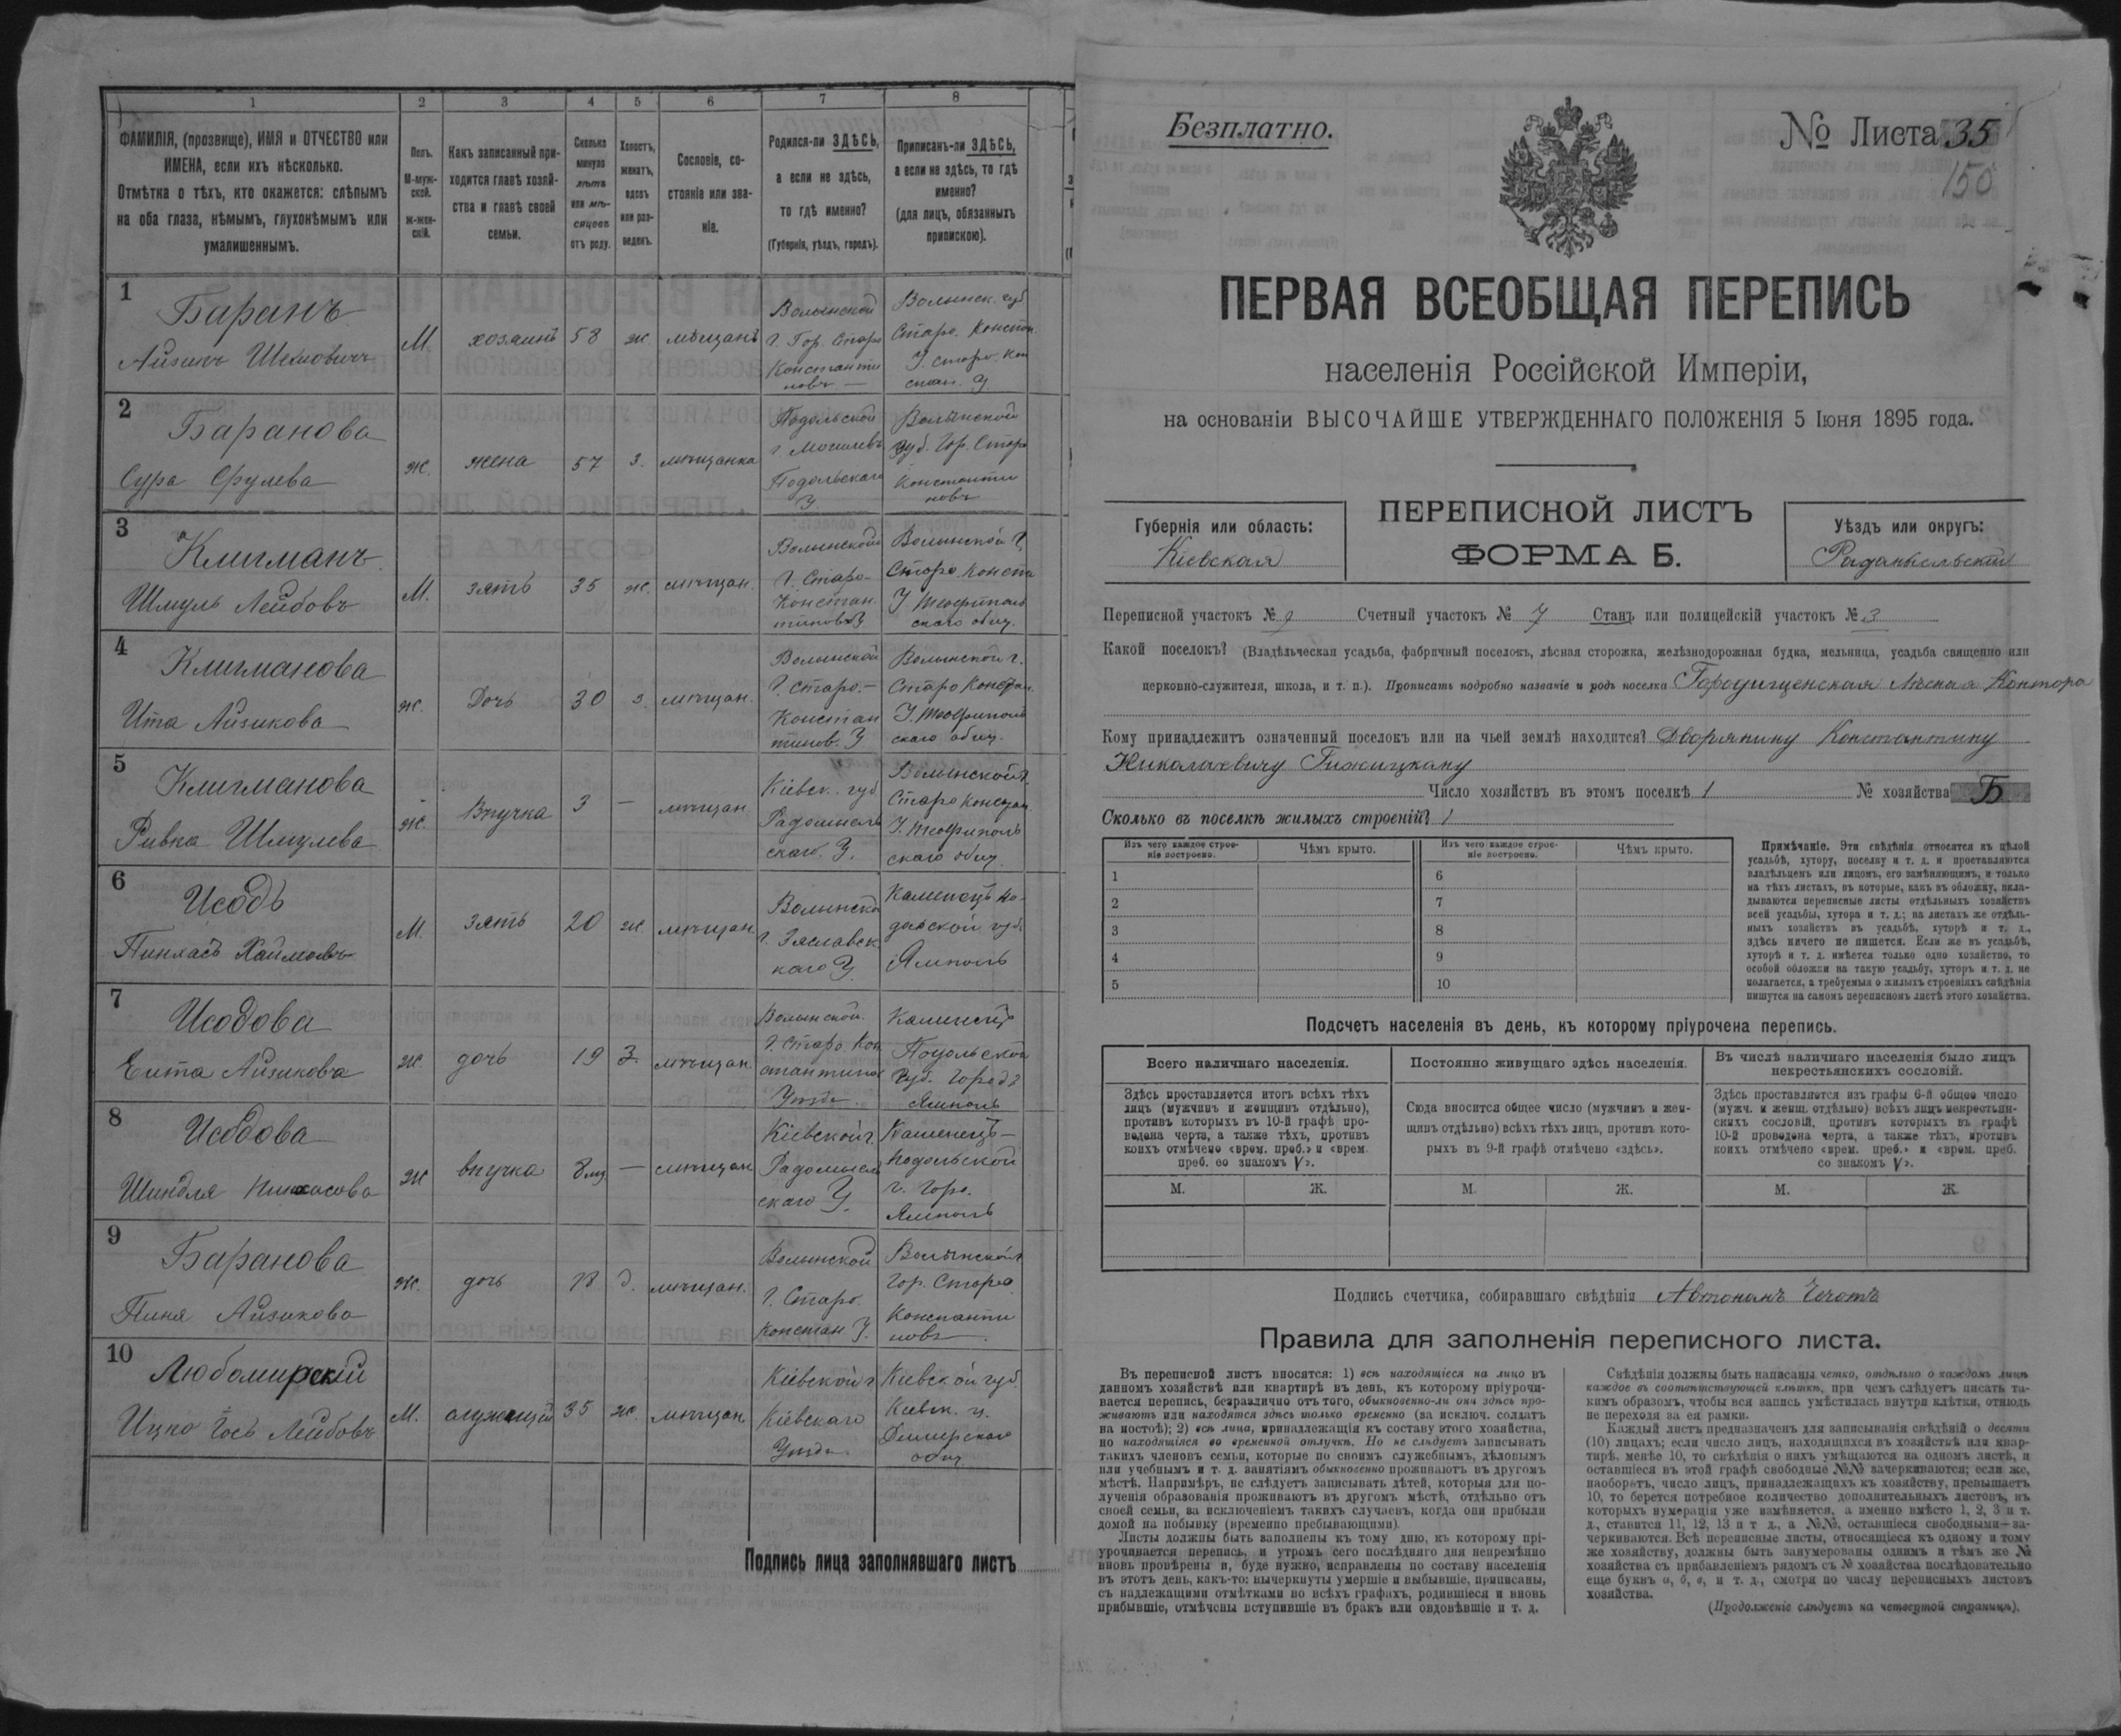 1 2 3 4 5 6 7 8
ФАМИЛІЯ, (прозвище), ИМЯ и ОТЧЕСТВО или
ИМЕНА, если ихъ нѣсколько.
Отмѣтка о тѣхъ, кто окажется: слѣпымъ
на оба глаза, нѣмымъ, глухонѣмымъ или
умалишеннымъ.
Полъ.
М-муж-
ской.
Ж-жен-
скій.
Какъ записанный при-
ходится главѣ хозяй-
ства и главѣ своей
семьи.
Сколько
минуло
лѣтъ
или мѣ-
сяцевъ
отъ роду.
Холостъ,
женатъ,
вдовъ
или раз-
веденъ.
Сословіе, со-
стояніе или зва-
ніе.
Родился-ли ЗДѢСЬ,
а если не здѣсь,
то гдѣ именно?
(Губернія, уѣздъ, городъ).
Приписанъ-ли ЗДѢСЬ,
а если не здѣсь, то гдѣ
именно?
(для лицъ, обязанныхъ
припискою).
1
Баранъ
Айзикъ
М
хозяинъ
58
ж.
мѣщанъ
Волынской
г. Гор. Старо
Константи
новъ
Волынск. губ
Старо. Констан
У. Старо. Кон
стан. У.
2
Баранова
Сура Срулева
ж.
жена
57
з.
мѣщанка
Подольской
г. Могилевъ
Подольскаго
У.
Волынской
Губ. Гор. Старо
Константи
новъ
3
Клигманъ
Шмуль Лейбовъ
М.
зять
35
ж.
мѣщан.
Волынской
Г. Старо-
Констан.
тиновъ У
Волынской Г.
Старо. Конста
У Теофиполь
скаго общ.
4
Клигманова
Ита Айзикова
ж.
Дочь
30
з.
мѣщан.
Волынской
Г. Старо.-
Констан
тинов. У
Волынской г.
Старо Констан.
У. Теофиполь
скаго общ.
5
Клигманова
Ривка Шмулева
ж.
Внучка
3
—
мѣщан.
Кіевск. губ
Радомысль
скаго. У.
Волынской г.
Старо Констан.
У. Теофиполь
скаго общ.
6
Исодъ
Пинхасъ Хаимовъ
М.
зять
20
ж.
мѣщан.
Волынской
г. Заславск
каго У.
Каменецъ По-
дольской губ.
Ямполь
7
Исодова
Ента Айзикова
ж.
дочь
19
З.
мѣщан.
Волынской.
Г. Старо Кон
стантинов
Уѣзда.
Каменецъ
Подольской
Губ. Городъ
Ямполь
8
Исодова
Шиндля Пинхасова
ж
внучка
8 мц
—
мѣщан
Кіевской г.
Радомысль
скаго У.
Каменецъ—
Подольской
г. Горо.
Ямполь
9
Баранова
Пиня Айзикова
ж.
дочь
18
д.
мѣщан.
Волынской
Г. Старо.
Констан У.
Волынской г
Гор. Старо
Константи
новъ.
10
Любомирскій
Ицко Іось Лейбовъ
М.
служащій
35
ж.
мѣщан.
Кіевской г
Кіевскаго
Уѣзда.
Кіевской губ.
Кіевск. у.
Дымерскаго
общ.
Подпись лица заполнявшаго листъ
Безплатно.
№ Листа 35
150
ПЕРВАЯ ВСЕОБЩАЯ ПЕРЕПИСЬ
населенія Россійской Имперіи,
на основаніи ВЫСОЧАЙШЕ УТВЕРЖДЕННАГО ПОЛОЖЕНІЯ 5 Іюня 1895 года.
Губернія или область:
Кіевская
ПЕРЕПИСНОЙ ЛИСТЪ
ФОРМА Б.
Уѣздъ или округъ:
Радомысльскій
Переписной участокъ № 9 Счетный участокъ № 7 Станъ или полицейскій участокъ № 3
Какой поселокъ? (Владѣльческая усадьба, фабричный поселокъ, лѣсная сторожка, желѣзнодорожная будка, мельница, усадьба священно или
церковно-служителя, школа, и т. п.). Прописать подробно названіе и родъ поселка Городищенская Лѣсная Контора
Кому принадлежитъ означенный поселокъ или на чьей землѣ находится? Дворянину Константину
Николаевичу Гижицкому
Число хозяйствъ въ этомъ поселкѣ 1 № хозяйства Б
Сколько въ поселкѣ жилыхъ строеній? 1
Изъ чего каждое строе-
ніе построено.
Чѣмъ крыто.
Изъ чего каждое строе-
ніе построено.
Чѣмъ крыто.
1 6
2 7
3 8
4 9
5 10
Примѣчаніе. Эти свѣдѣнія относятся къ цѣлой
усадьбѣ, хутору, поселку и т. д. и проставляются
владѣльцемъ или лицомъ, его замѣняющимъ, и только
на тѣхъ листахъ, въ которые, какъ въ обложку, вкла-
дываются переписные листы отдѣльныхъ хозяйствъ
всей усадьбы, хутора и т. д.; на листахъ же отдѣль-
ныхъ хозяйствъ въ усадьбѣ, хуторѣ и т. д.,
здѣсь ничего не пишется. Если же въ усадьбѣ,
хуторѣ и т. д. имѣется только одно хозяйство, то
особой обложки на такую усадьбу, хуторъ и т. д. не
полагается, а требуемыя о жилыхъ строеніяхъ свѣдѣнія
пишутся на самомъ переписномъ листѣ этого хозяйства.
Подсчетъ населенія въ день, къ которому пріурочена перепись.
Всего наличнаго населенія.
Здѣсь проставляется итогъ всѣхъ тѣхъ
лицъ (мужчинъ и женщинъ отдѣльно),
противъ которыхъ въ 10-й графѣ про-
ведена черта, а также тѣхъ, противъ
коихъ отмѣчено «врем. преб.» и «врем.
преб. со знакомъ V».
Постоянно живущаго здѣсь населенія.
Сюда вносится общее число (мужчинъ и жен-
щинъ отдѣльно) всѣхъ тѣхъ лицъ, противъ кото-
рыхъ въ 9-й графѣ отмѣчено «здѣсь».
Въ числѣ наличнаго населенія было лицъ
некрестьянскихъ сословій.
Здѣсь проставляется изъ графы 6-й общее число
(мужч. и женщ. отдѣльно) всѣхъ лицъ некрестьян-
скихъ сословій, противъ которыхъ въ графѣ
10-й проведена черта, а также тѣхъ, противъ
коихъ отмѣчено «врем. преб.» и «врем. преб.
со знакомъ V».
М. Ж. М. Ж. М. Ж.
Подпись счетчика, собиравшаго свѣдѣнія Автономъ
Правила для заполненія переписного листа.
Въ переписной листъ вносятся: 1) всѣ находящіеся на лицо въ
данномъ хозяйствѣ или квартирѣ въ день, къ которому пріурочи-
вается перепись, безразлично отъ того, обыкновенно-ли они здѣсь про-
живаютъ или находятся здѣсь только временно (за исключ. солдатъ
на постоѣ); 2) всѣ лица, принадлежащія къ составу этого хозяйства,
но находящіяся во временной отлучкѣ. Но не слѣдуетъ записывать
такихъ членовъ семьи, которые по своимъ служебнымъ, дѣловымъ
или учебнымъ и т. д. занятіямъ обыкновенно проживаютъ въ другомъ
мѣстѣ. Напримѣръ, не слѣдуетъ записывать дѣтей, которыя для по-
лученія образованія проживаютъ въ другомъ мѣстѣ, отдѣльно отъ
своей семьи, за исключеніемъ такихъ случаевъ, когда они прибыли
домой на побывку (временно пребывающими).
Листы должны быть заполнены къ тому дню, къ которому прі-
урочивается перепись, и утромъ сего послѣдняго дня непремѣнно
вновь провѣрены и, буде нужно, исправлены по составу населенія
въ этотъ день, какъ-то: вычеркнуты умершіе и выбывшіе, приписаны,
съ надлежащими отмѣтками во всѣхъ графахъ, родившіеся и вновь
прибывшіе, отмѣчены вступившіе въ бракъ или овдовѣвшіе и т. д.
Свѣдѣнія должны быть написаны четко, отдѣльно о каждомъ лицѣ
каждое въ соотвѣтствующей клѣткѣ, при чемъ слѣдуетъ писать та-
кимъ образомъ, чтобы вся запись умѣстилась внутри клѣтки, отнюдь
не переходя за ея рамки.
Каждый листъ предназначенъ для записыванія свѣдѣній о десяти
(10) лицахъ; если число лицъ, находящихся въ хозяйствѣ или квар-
тирѣ, менѣе 10, то свѣдѣнія о нихъ умѣщаются на одномъ листѣ, и
оставшіеся въ этой графѣ свободные №№ зачеркиваются; если же,
наоборотъ, число лицъ, принадлежащихъ къ хозяйству, превышаетъ
10, то берется потребное количество дополнительныхъ листовъ, въ
которыхъ нумерація уже измѣняется, а именно вмѣсто 1, 2, 3 и т.
д., ставится 11, 12, 13 и т д., а №№, оставшіеся свободными—за-
черкиваются. Всѣ переписные листы, относящіеся къ одному и тому
же хозяйству, должны быть занумерованы однимъ и тѣмъ же №
хозяйства съ прибавленіемъ рядомъ съ № хозяйства послѣдовательно
еще буквъ а, б, в, и т. д., смотря по числу переписныхъ листовъ
хозяйства.
(Продолженіе слѣдуетъ на четвертой страницѣ).